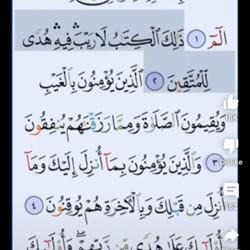 الٓمٓ ١ ذَٰلِكَ ٱلْكِتَٰبُ لَا رَيْبَ ۛ فِيهِ ۛ هُدًى
لِّلْمُتَّقِينَ ٢ ٱلَّذِينَ يُؤْمِنُونَ بِٱلْغَيْبِ
وَيُقِيمُونَ ٱلصَّلَوٰةَ وَمِمَّا رَزَقْنَٰهُمْ يُنفِقُونَ
٣ وَٱلَّذِينَ يُؤْمِنُونَ بِمَآ أُنزِلَ إِلَيْكَ وَمَآ
أُنزِلَ مِن قَبْلِكَ وَبِٱلْأَخِرَةِ هُمْ يُوقِنُونَ ٤
أُو۟لَٰٓئِكَ عَلَىٰ هُدًى مِّن رَّبِّهِمْ ۖ وَأُو۟لَٰٓئِكَ